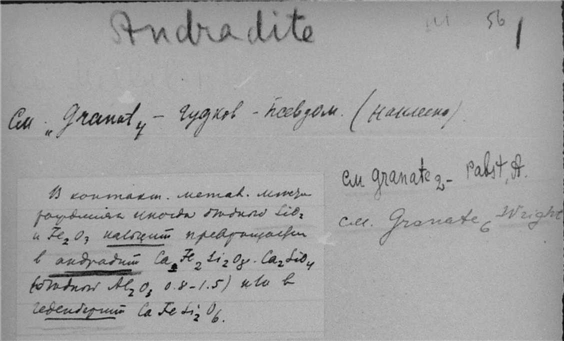 Andradite
56 1
см. „Granat4 – Гудков – псевдом. (наклеено).
см granate2 – Pabst, A.
см. Granate6 Wright
В контакт. метам.
иногда бедного SiO2
и Fe2O3 превращается
в андрадит Ca2Fe2Si2O8.Ca2SiO4
(бедного Al2O3 0.8–1.5) или в
геденбергит CaFeSi2O6.